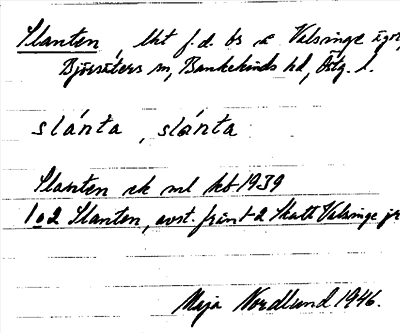 Slanten, lht f.d. bs å Valsringe ägor,
Björsäters sn, Bankekinds hd, Östg. l.
slánta, slánta
Slanten rk ml kb 1939
1 o 2 Slanten, avst. från 1-2 Skatt Valsinge jr
Maja Nordlund 1946.